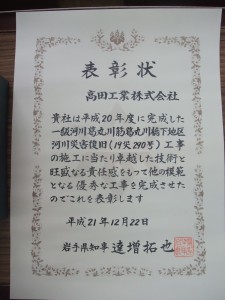 表彰状
高田工業株式会社
貴社は平成20年度に完成した
一級河川葛丸川筋葛丸川橋下地区
河川災害復旧(19災290号)工事
の施工に当たり卓越した技術と
旺盛なる責任感をもって他の模範
となる優秀な工事を完成させた
のでこれを表彰します
平成21年12月22日
岩手県知事 達増拓也